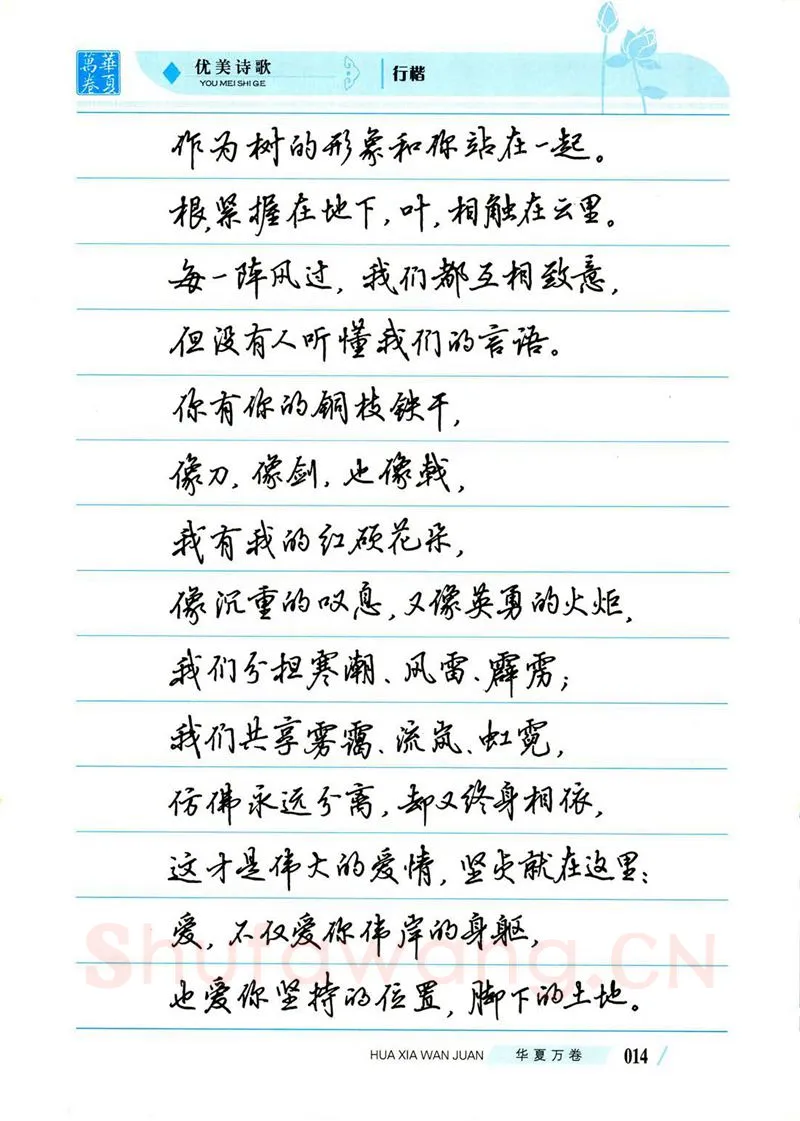 華夏萬卷
优美诗歌 行楷
YOU MEI SHI GE
作为树的形象和你站在一起。
根,紧握在地下,叶,相触在云里。
每一阵风过,我们都互相致意,
但没有人听懂我们的言语。
你有你的铜枝铁干,
像刀,像剑,也像戟,
我有我的红硕花朵,
像沉重的叹息,又像英勇的火炬,
我们分担寒潮、风雷、霹雳;
我们共享雾霭、流岚、虹霓,
仿佛永远分离,却又终身相依,
这才是伟大的爱情,坚贞就在这里:
爱,不仅爱你伟岸的身躯,
也爱你坚持的位置,脚下的土地。
Shufawang.CN
HUA XIA WAN JUAN 华夏万卷 014